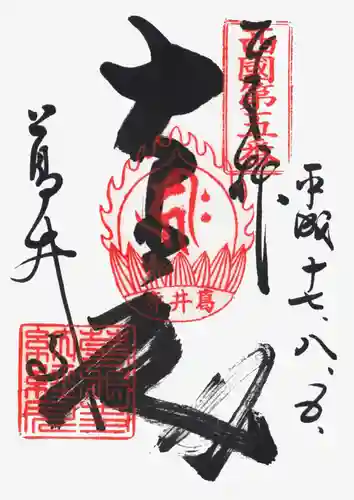 西國第五番
奉拝
平成十七、八、五、
大悲殿
寺井葛
葛井寺